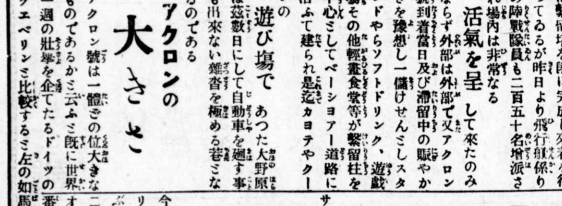 てゐるが昨日より飛行船係り
陸戰隊員も二百五十名增派さ
れ場内は非常なる
活氣を呈して來たのみ
ならず外部は外部で又アクロン
號到着當日及び滯留中の賑やか
さを豫想し一儲けせんとしスタ
ンドやらソフトドリンク、遊戲
場その他輕畫食堂等が繫留柱を
中心としてベーショアー道路に
沿ふて建られ是迄カヨテやクー
の
遊び場であつた大野原
は茲數日にして自動車を廻す事
も出來ない雜沓を極める巷とな
るのである
アクロンの
大きさ
アクロン號は一體どの位大きな
ものであるかと云ふと旣に世界
一週の壯擧を企てたるドイツの
ツエペリンと比較すると左の如
今
サ